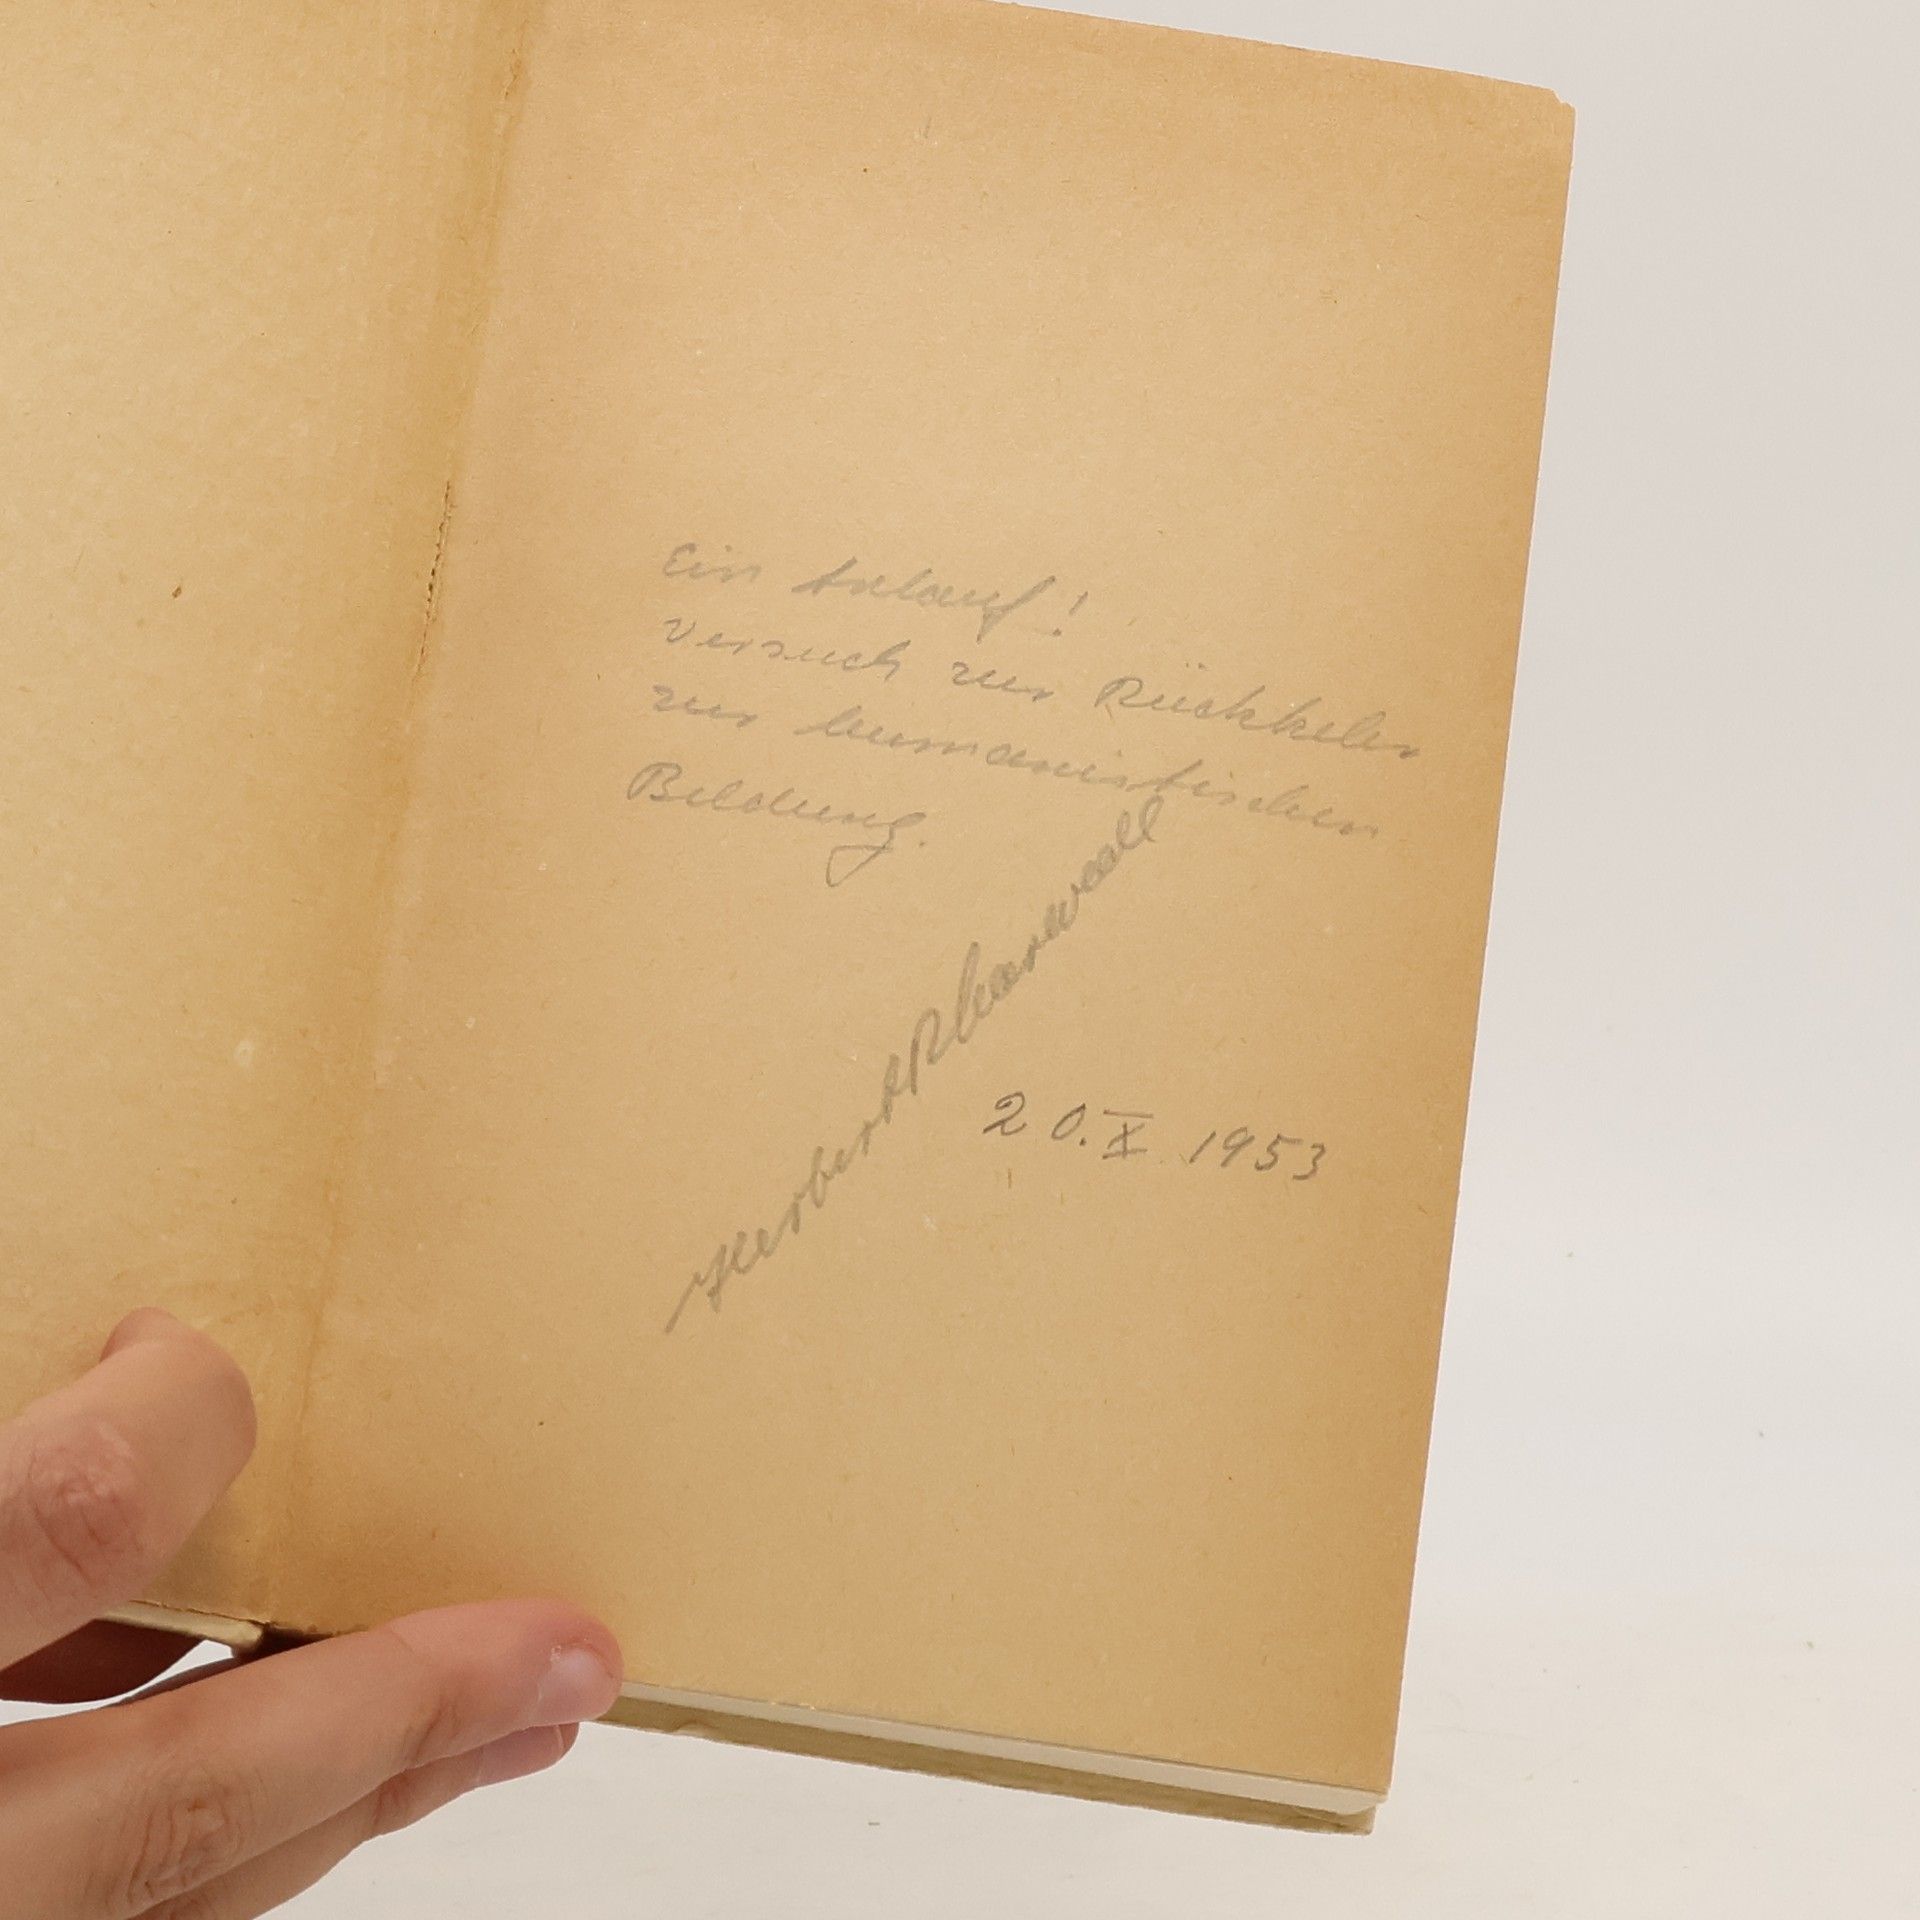 Ein Anlauf!
Versuch zur Rückkehr
zur humanistischen
Bildung.
Herbert
20. X. 1953